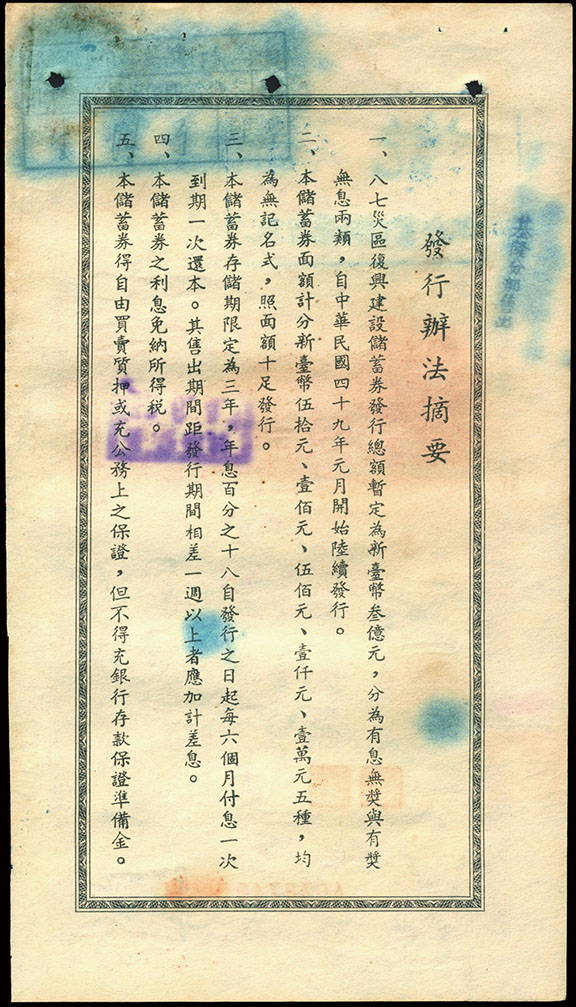 發行辦法摘要
一、八七災區復興建設儲蓄券發行總額暫定為新臺幣叁億元，分為有息無獎與有獎
無息兩類，自中華民國四十九年元月開始陸續發行。
二、本儲蓄券面額計分新臺幣伍拾元、壹佰元、伍佰元、壹仟元、壹萬元五種，均
為無記名式，照面額十足發行。
三、本儲蓄券存儲期限定為三年，年息百分之十八自發行之日起每六個月付息一次
到期一次還本。其售出期間距發行期間相差一週以上者應加計差息。
四、本儲蓄券之利息免納所得稅。
五、本儲蓄券得自由買賣質押或充公務上之保證，但不得充銀行存款保證準備金。